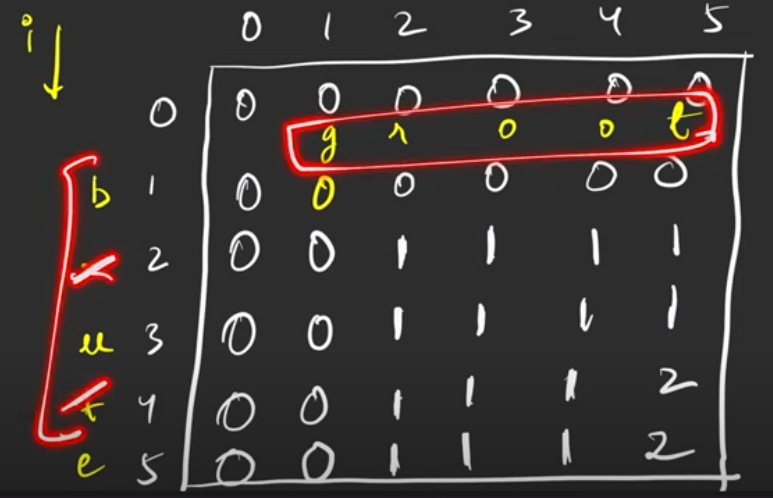 i 0 1 2 3 4 5
0 0 0 0 0 0 0
g r o o t
b 1 0 0 0 0 0 0
2 0 0 1 1 1 1
u 3 0 0 1 1 1 1
t 4 0 0 1 1 1 2
e 5 0 0 1 1 1 2